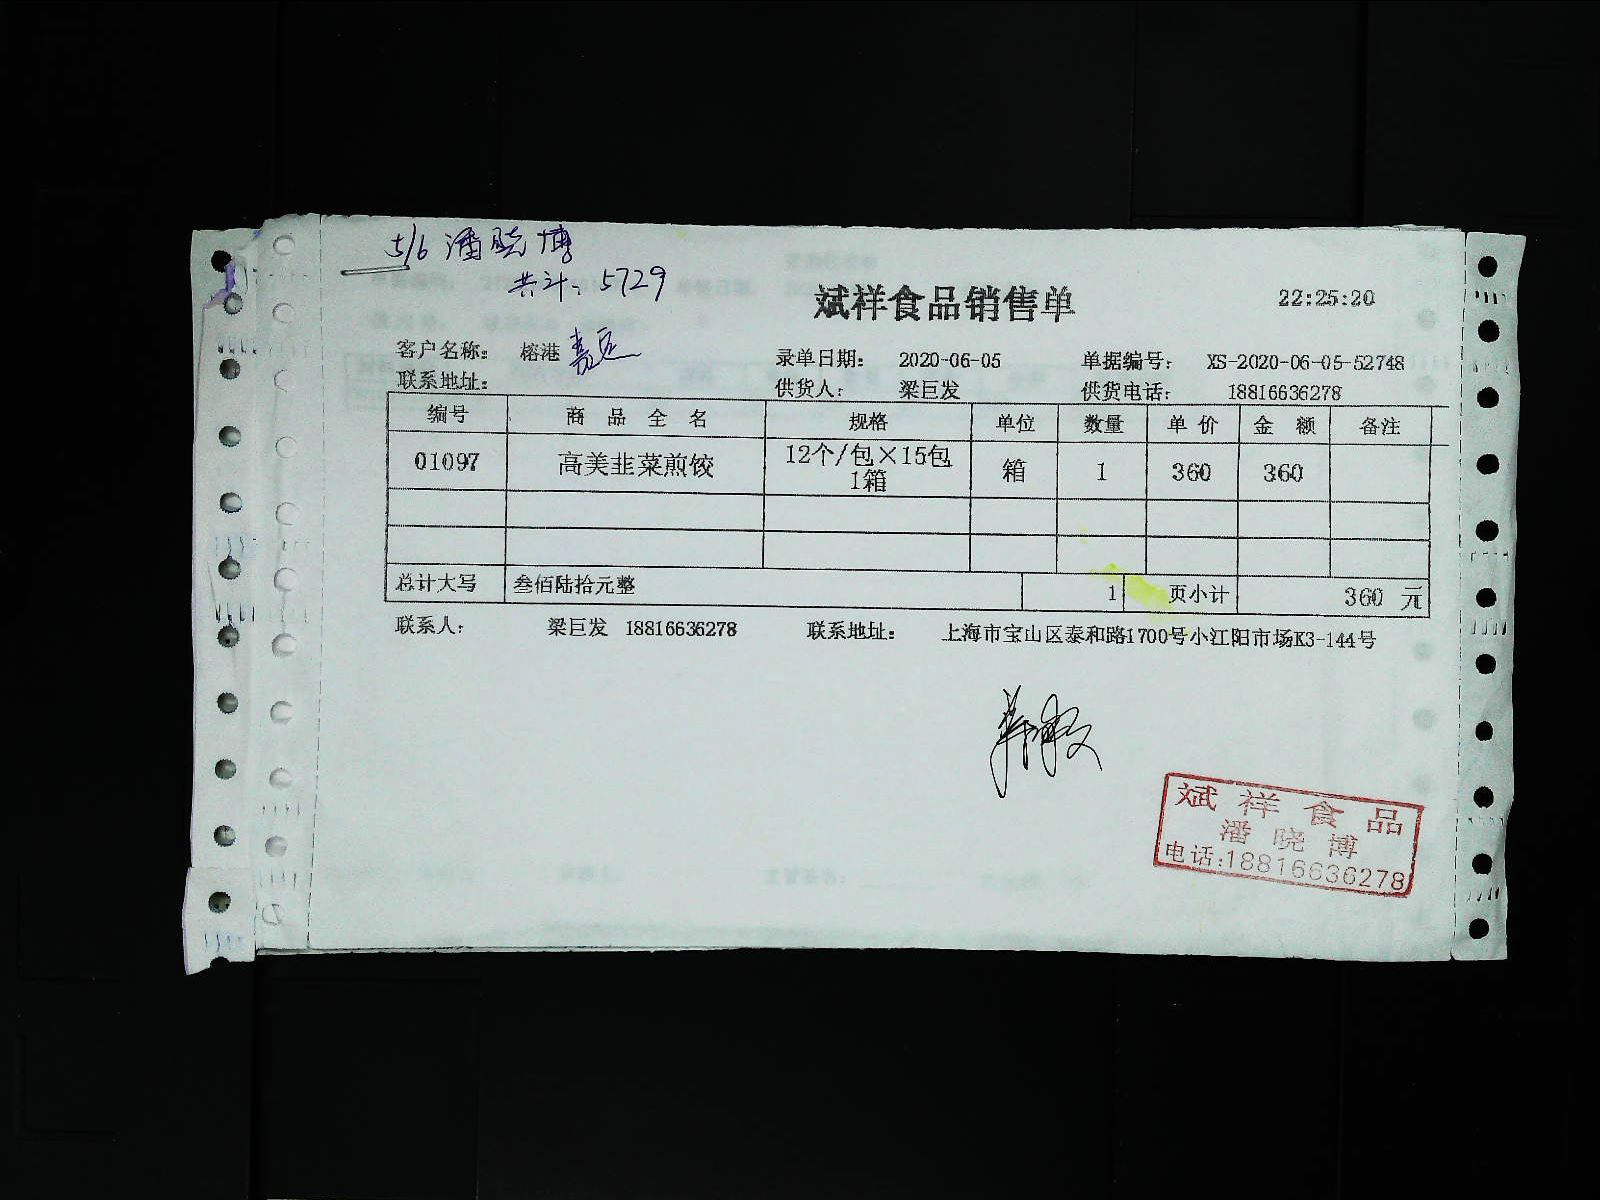 5/6 潘晓博
共计：5729
斌祥食品销售单
22:25:20
客户名称： 榕港 录单日期： 2020-06-05 单据编号： XS-2020-06-05-52748
联系地址： 供货人： 梁巨发 供货电话： 18816636278
编号 商 品 全 名 规格 单位 数量 单 价 金 额 备注
01097 高美韭菜煎饺 12个/包×15包 1箱 箱 1 360 360
总计大写 叁佰陆拾元整 1 页小计 360 元
联系人： 梁巨发 18816636278 联系地址： 上海市宝山区泰和路1700号小江阳市场K3-144号
斌祥食品
潘晓博
电话:18816636278